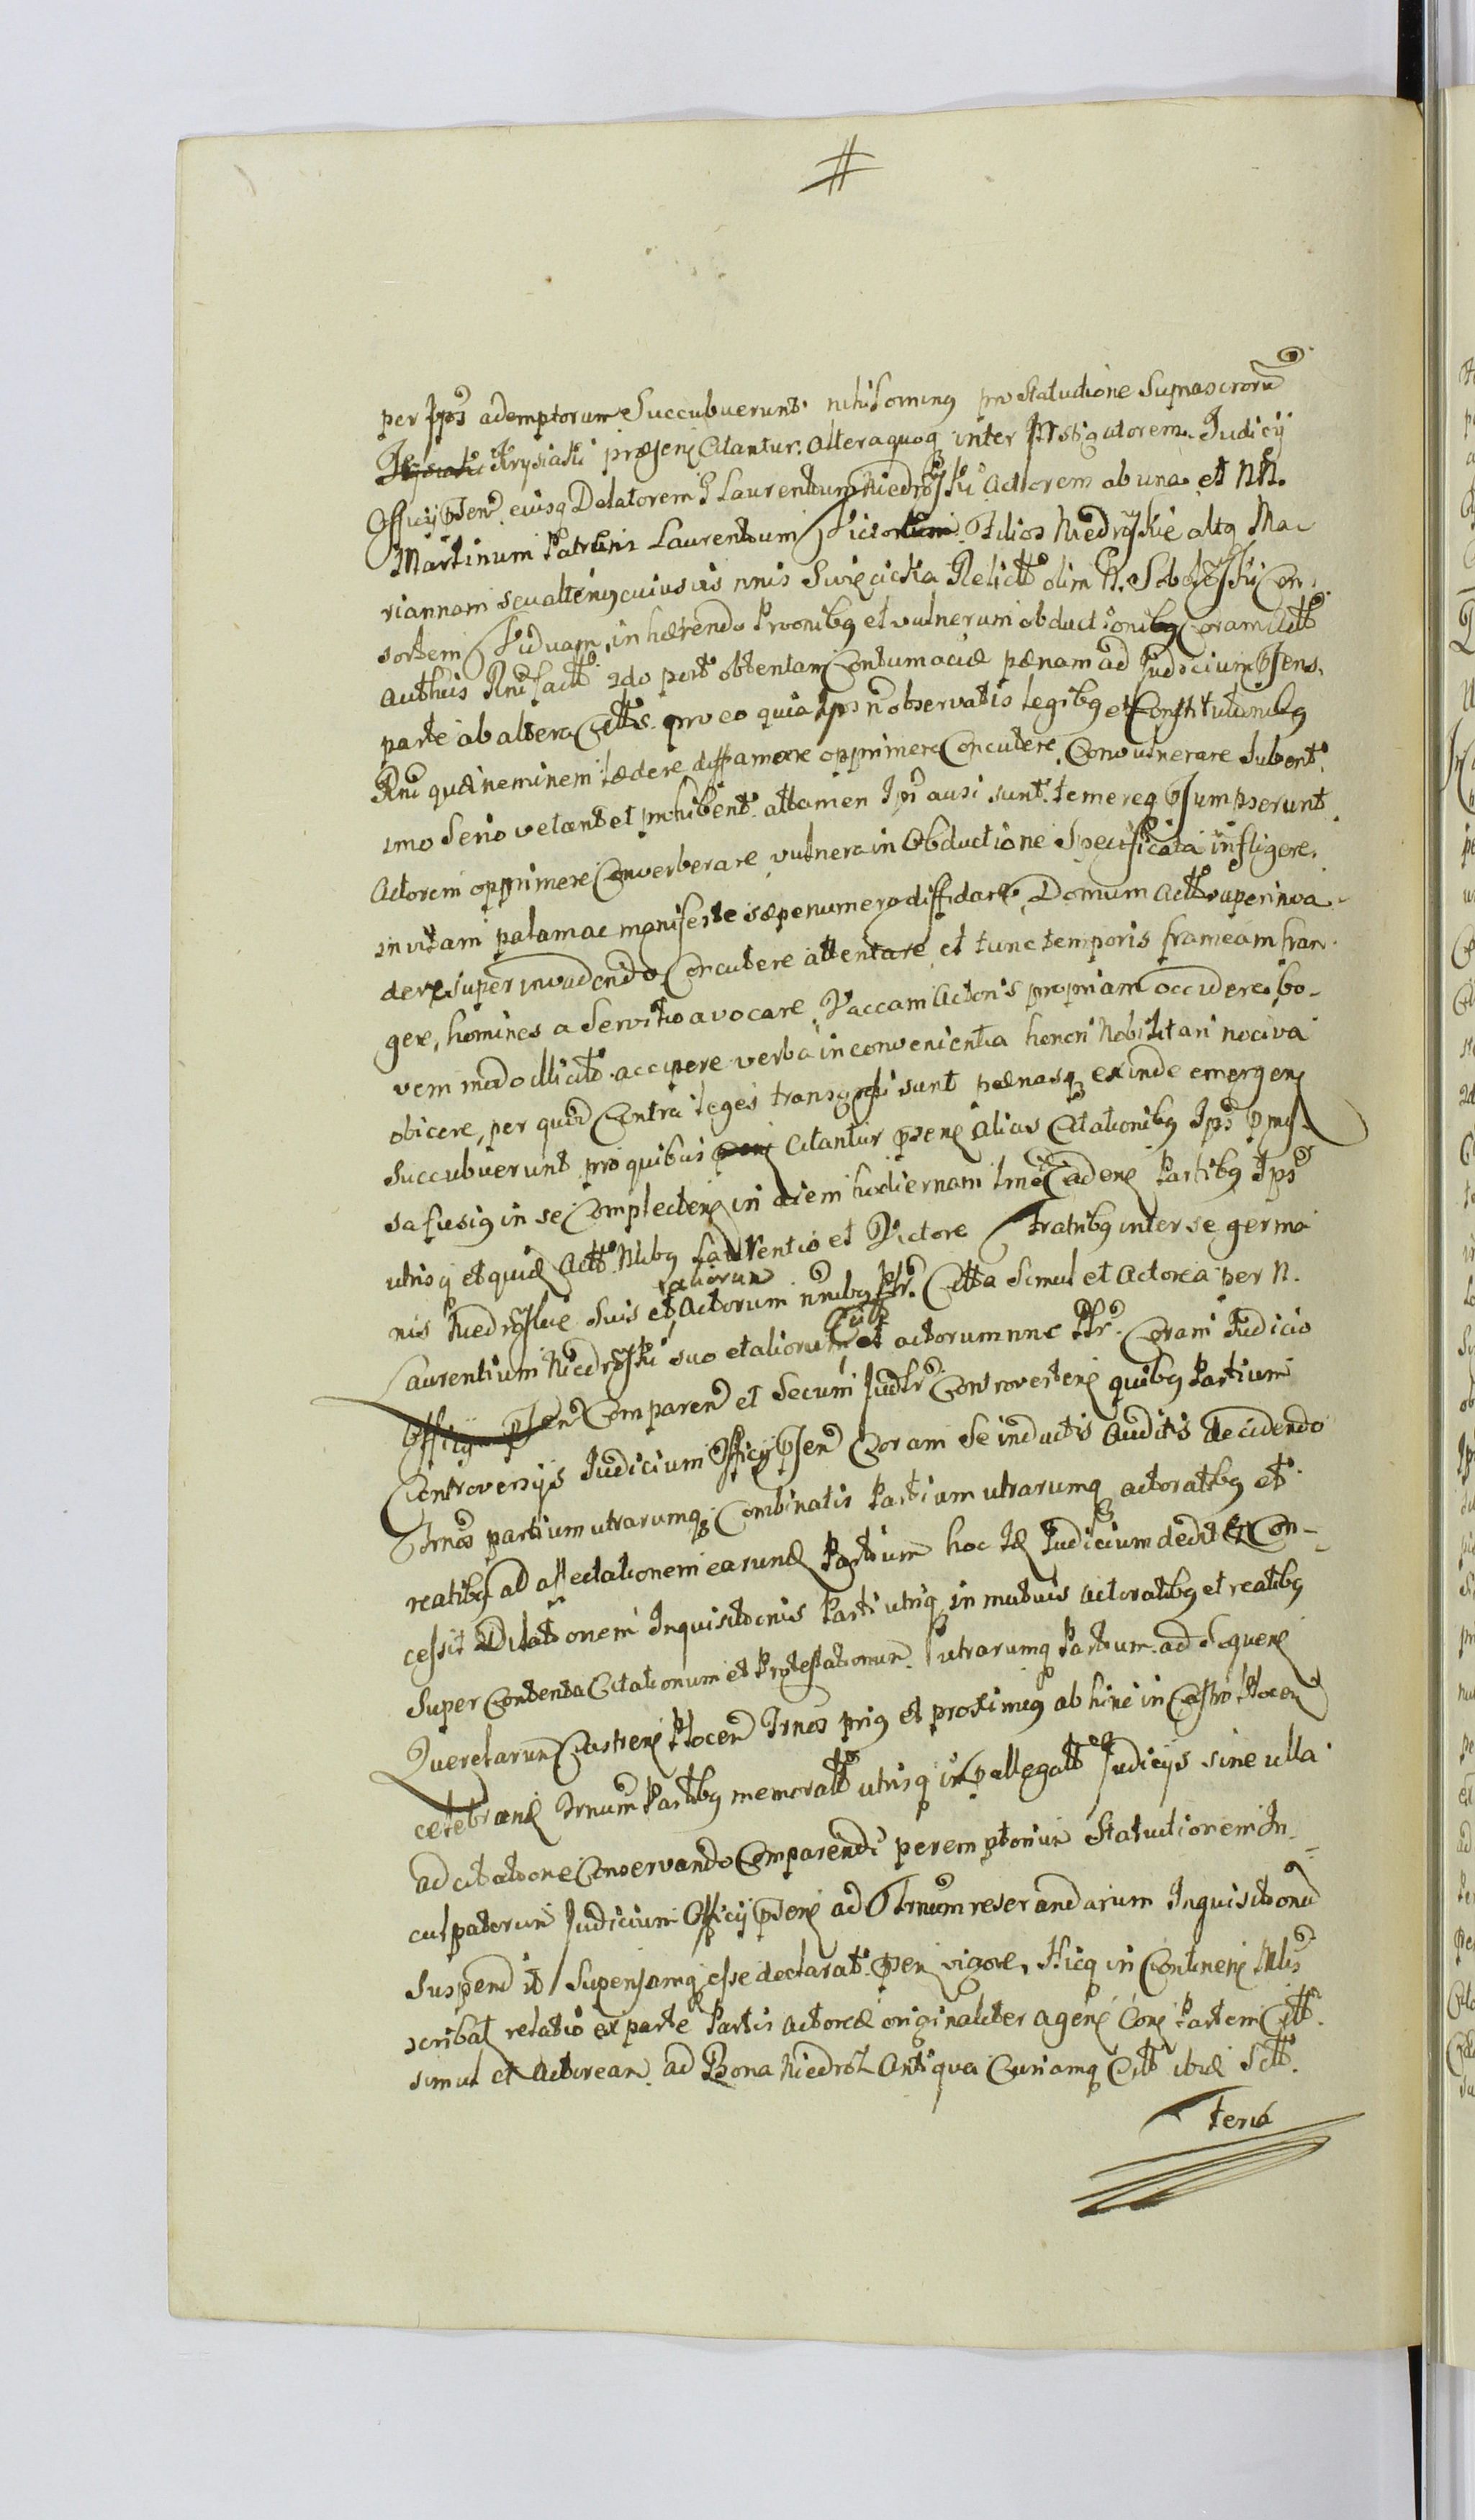 #
per Ips ademptorum Succubuerunt nihilominq pro Statutione Suprascrorũ
Krysiaki præsen Citantur. Altera quoq inter Instigatorem Judicij
Officij psen eiusq Delatorem G Laurentium Niedroski Actorem ab una et NN.
Martinum Patrem Laurentium Victorem Filios Niedroskie altq Ma-
riannam seu alterius cuiusvis nnis Swięcicka Relict olim N. Con-
sortem Viduam, in hærendo Prõonibq et vulnerum obductionibq coram Actt
authcis Rni fact 2do post obtentam Contumaciæ pænam ad Judicium psens
parte ab altera Cittts pro eo quia Ips n observatis legibq et Constitutionibq
Rni quæ neminem lædere diffamare opprimere Concutere, Convulnerare Jubent
imo Serio vetant et prohibent attamen Ips ausi sunt temereq psumpserunt
Actorem opprimere Converberare vulnera in Obductione Specificata infligere,
in vitam palam ac manifeste sæpenumero diffidare, Domum Actt superinva-
dere, superinvadendo Concutere attentare et tunc temporis frameam fran-
gere, homines a Servitio avocare, Vaccam Actoris propriam occidere, bo-
vem modo illicito accipere verba inconvenientia honori Nobilitari nociva
obicere, per quod Contra leges transgressi sunt pænasq exinde emergen
Succubuerunt pro quibus Citantur psen alias Citationibq Ips pmis-
sa fusiq in se Complecten in diem hodiernam Trno Caden Partibq Ips
utrisq et quid Actt Nlibq Laurentio et Victore Fratribq inter se germa
nis Niedroskie Suis et aliorum Actorum nnibq Ptr. Citta Simul et Actorea per N.
Laurentium Niedroski suo et aliorum Citt et actorum nnc Ptr. Coram Judicio
Officij psen Comparen et Secum Judtr Controverten quibq Partium
Controversijs Judicium Officij psen Coram Se inductis Auditis decidendo
Trnos partium utrarumq Combinatis Partium utrarumq actoratibq et
reatibq ad affectationem earund Partium hoc Id Judicium dedit et Con-
cessit Dilationem Inquisitionis Parti utriq in mutuis actoratibq et reatibq
Super Contenta Citationum et Protestationum utrarumq Partium ad Sequen
Querelarum Castren Plocen Trnos priq et proximiq ab hinc in Castro Plocen
celebran Trnum Partibq memoratt utrisq in pallegatt Judicijs sine ulla
adcitatione Conservando Comparendi peremptorium Statutionem In-
culpatorum Judicium Officij psen ad Trnum reserandarum Inquisitionũ
Suspendit Supensamq esse declarat psen vigore. Hicq in Continen
scribat relatio ex parte Partis actoreæ originaliter agen Con Partem Citt
simul et Actoream ad Bona Niedroz Antiqua Curiamq Citt ibid Sitt
feria